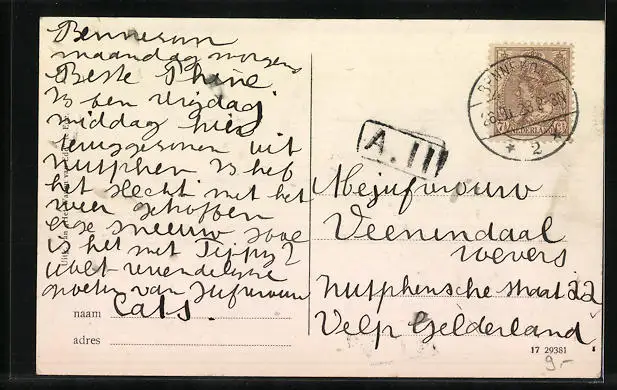 Bennekom
maandag morgen
Beste Phine
Ik ben vrijdag
middag hier
teruggekomen uit
Zutphen Ik heb
het slecht met het
weer getroffen
erge sneeuw hoe
is het met Tippy?
Met vriendelijke
groeten van Jufvrouw
Cats.
naam
adres
A. III
BENNEKOM
2
NEDERLAND
Mejufvrouw
Veenendaal
wevers
Zutphensche straat 22
Velp Gelderland.
17 29381
9.-